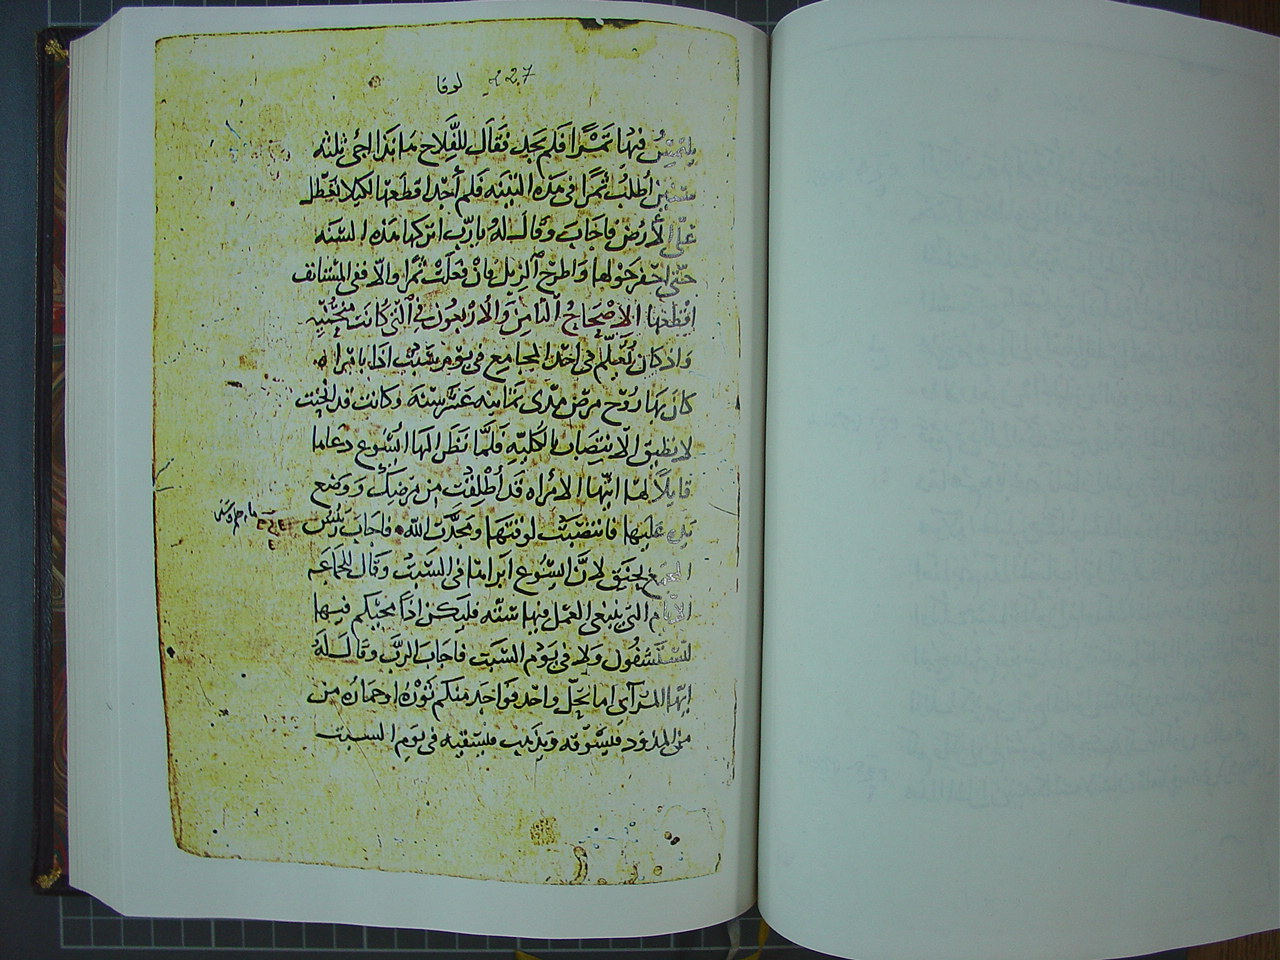 لوقا 227
يلتمس فيها ثمرًا فلم يجد فقال للفلاح ماندا اجى ثلثه
سنين اطلب ثمرًا فى هذه التينه فلم أجد اقطعها لكيلا تعطل
على الأرض فاجاب وقال له يا رب اتركها هذه السنه
حتى احفر حولها واطرح الزبل فان فعلت ثمرا والا ففى المستانف
اقطعها الاصحاح الثامن والاربعون فى التى كانت منحنيه
واذ كان يُعلّم فى احد المجامع فى يوم سبت اذا بامراه
كان بها روح مرض مدى ثمانيه عشر سنه وكانت قد انحنت
لا تطيق الانتصاب بالكليه فلما نظر الها ايسوع دعاها
قايلًا لها ايتها الامراه قد أطلقت من مرضك ووضع
يده عليها فانتصبت لوقتها ومجدت الله فاجاب ريس
المجمع بحنق لان ايسوع ابراها فى السبت وقال للجماعه
الايام التى ينبغى العمل فيها سته فليكن اذًا مجيكم فيها
لتستشفون ولا فى يوم السبت فاجاب الرب وقال له
ايها المرآى اما يحل واحد فواحد منكم ثوره او حماره من
على المذود فيسوقه ويذهب فيسقيه فى يوم السبت